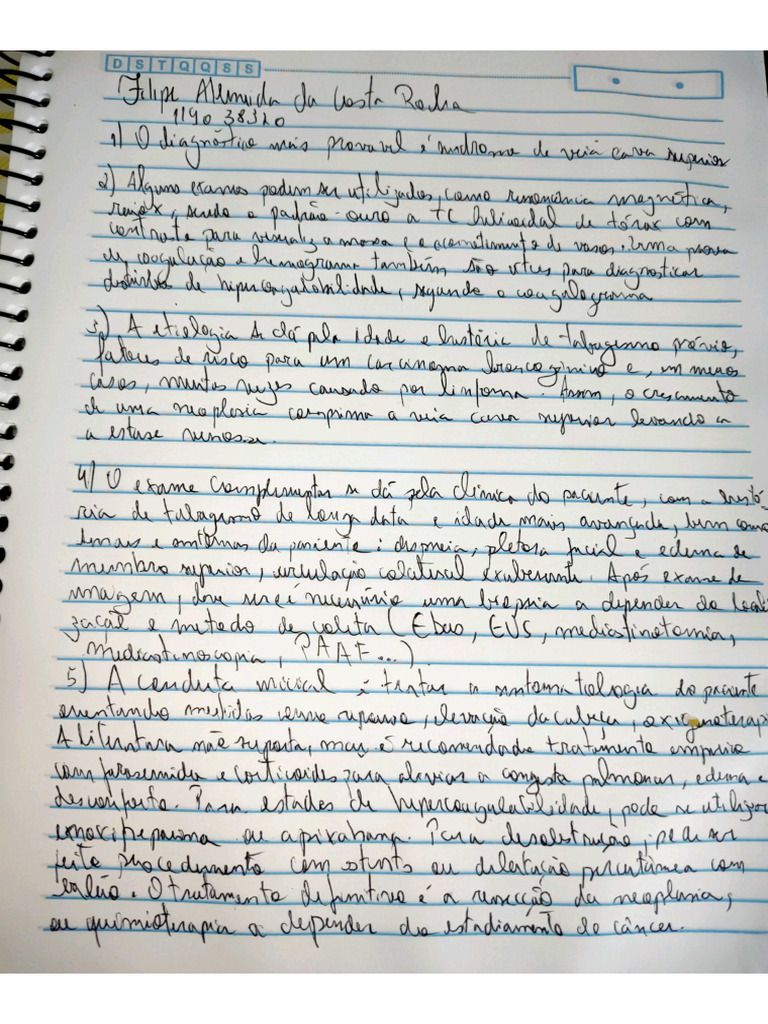 D S T Q Q S S
Filipe Almeida da Costa Rocha
1190 38310
1) O diagnóstico mais provavel é sindrome de veia cava superior
2) Alguns exames podem ser utilizados, como ressonância magnética,
raio x, sendo o padrão-ouro a TC helicoidal de tórax com
contraste para visualiz a massa e o acometimento de vasos. Uma prova
de coagulação e hemograma também são úteis para diagnosticar
distúrbios de hipercoagulabilidade, segundo o coagulograma
3) A etiologia se dá pela idade e história de tabagismo prévio,
fatores de risco para um carcinoma broncogênico e, em menos
casos, muitas vezes causado por linfoma. Assim, o crescimento
de uma neoplasia comprima a veia cava superior levando a
a estase venosa.
4) O exame complementar se dá pela clínica do paciente, com a histó-
ria de tabagismo de longa data e idade mais avançada, bem como
sinais e sintomas da paciente: dispneia, pletora facial e edema de
membro superior, circulação colateral exuberante. Após exame de
imagem, necessário uma biopsia a depender da locali
zação e metodo de coleta (Ebus, EUS, mediastinotomia,
mediastinoscopia, PAAF...)
5) A conduta inicial é tratar a sintomatologia do paciente
orientando medidas como repouso, elevação da cabeça, oxigenoterapi
A literatura não suporta, mas é recomendado tratamento empírico
com furosemida e corticoides para aliviar a congesta pulmonar, edema e
desconforto. Para estados de hipercoagulabilidade, pode se utilizar
enoxiheparina ou apixabana. Para desobstrução, pode ser
feito procedimento com stents ou dilatação percutânea com
balão. O tratamento definitivo é a remoção da neoplasia,
ou quimioterapia a depender do estadiamento do câncer.